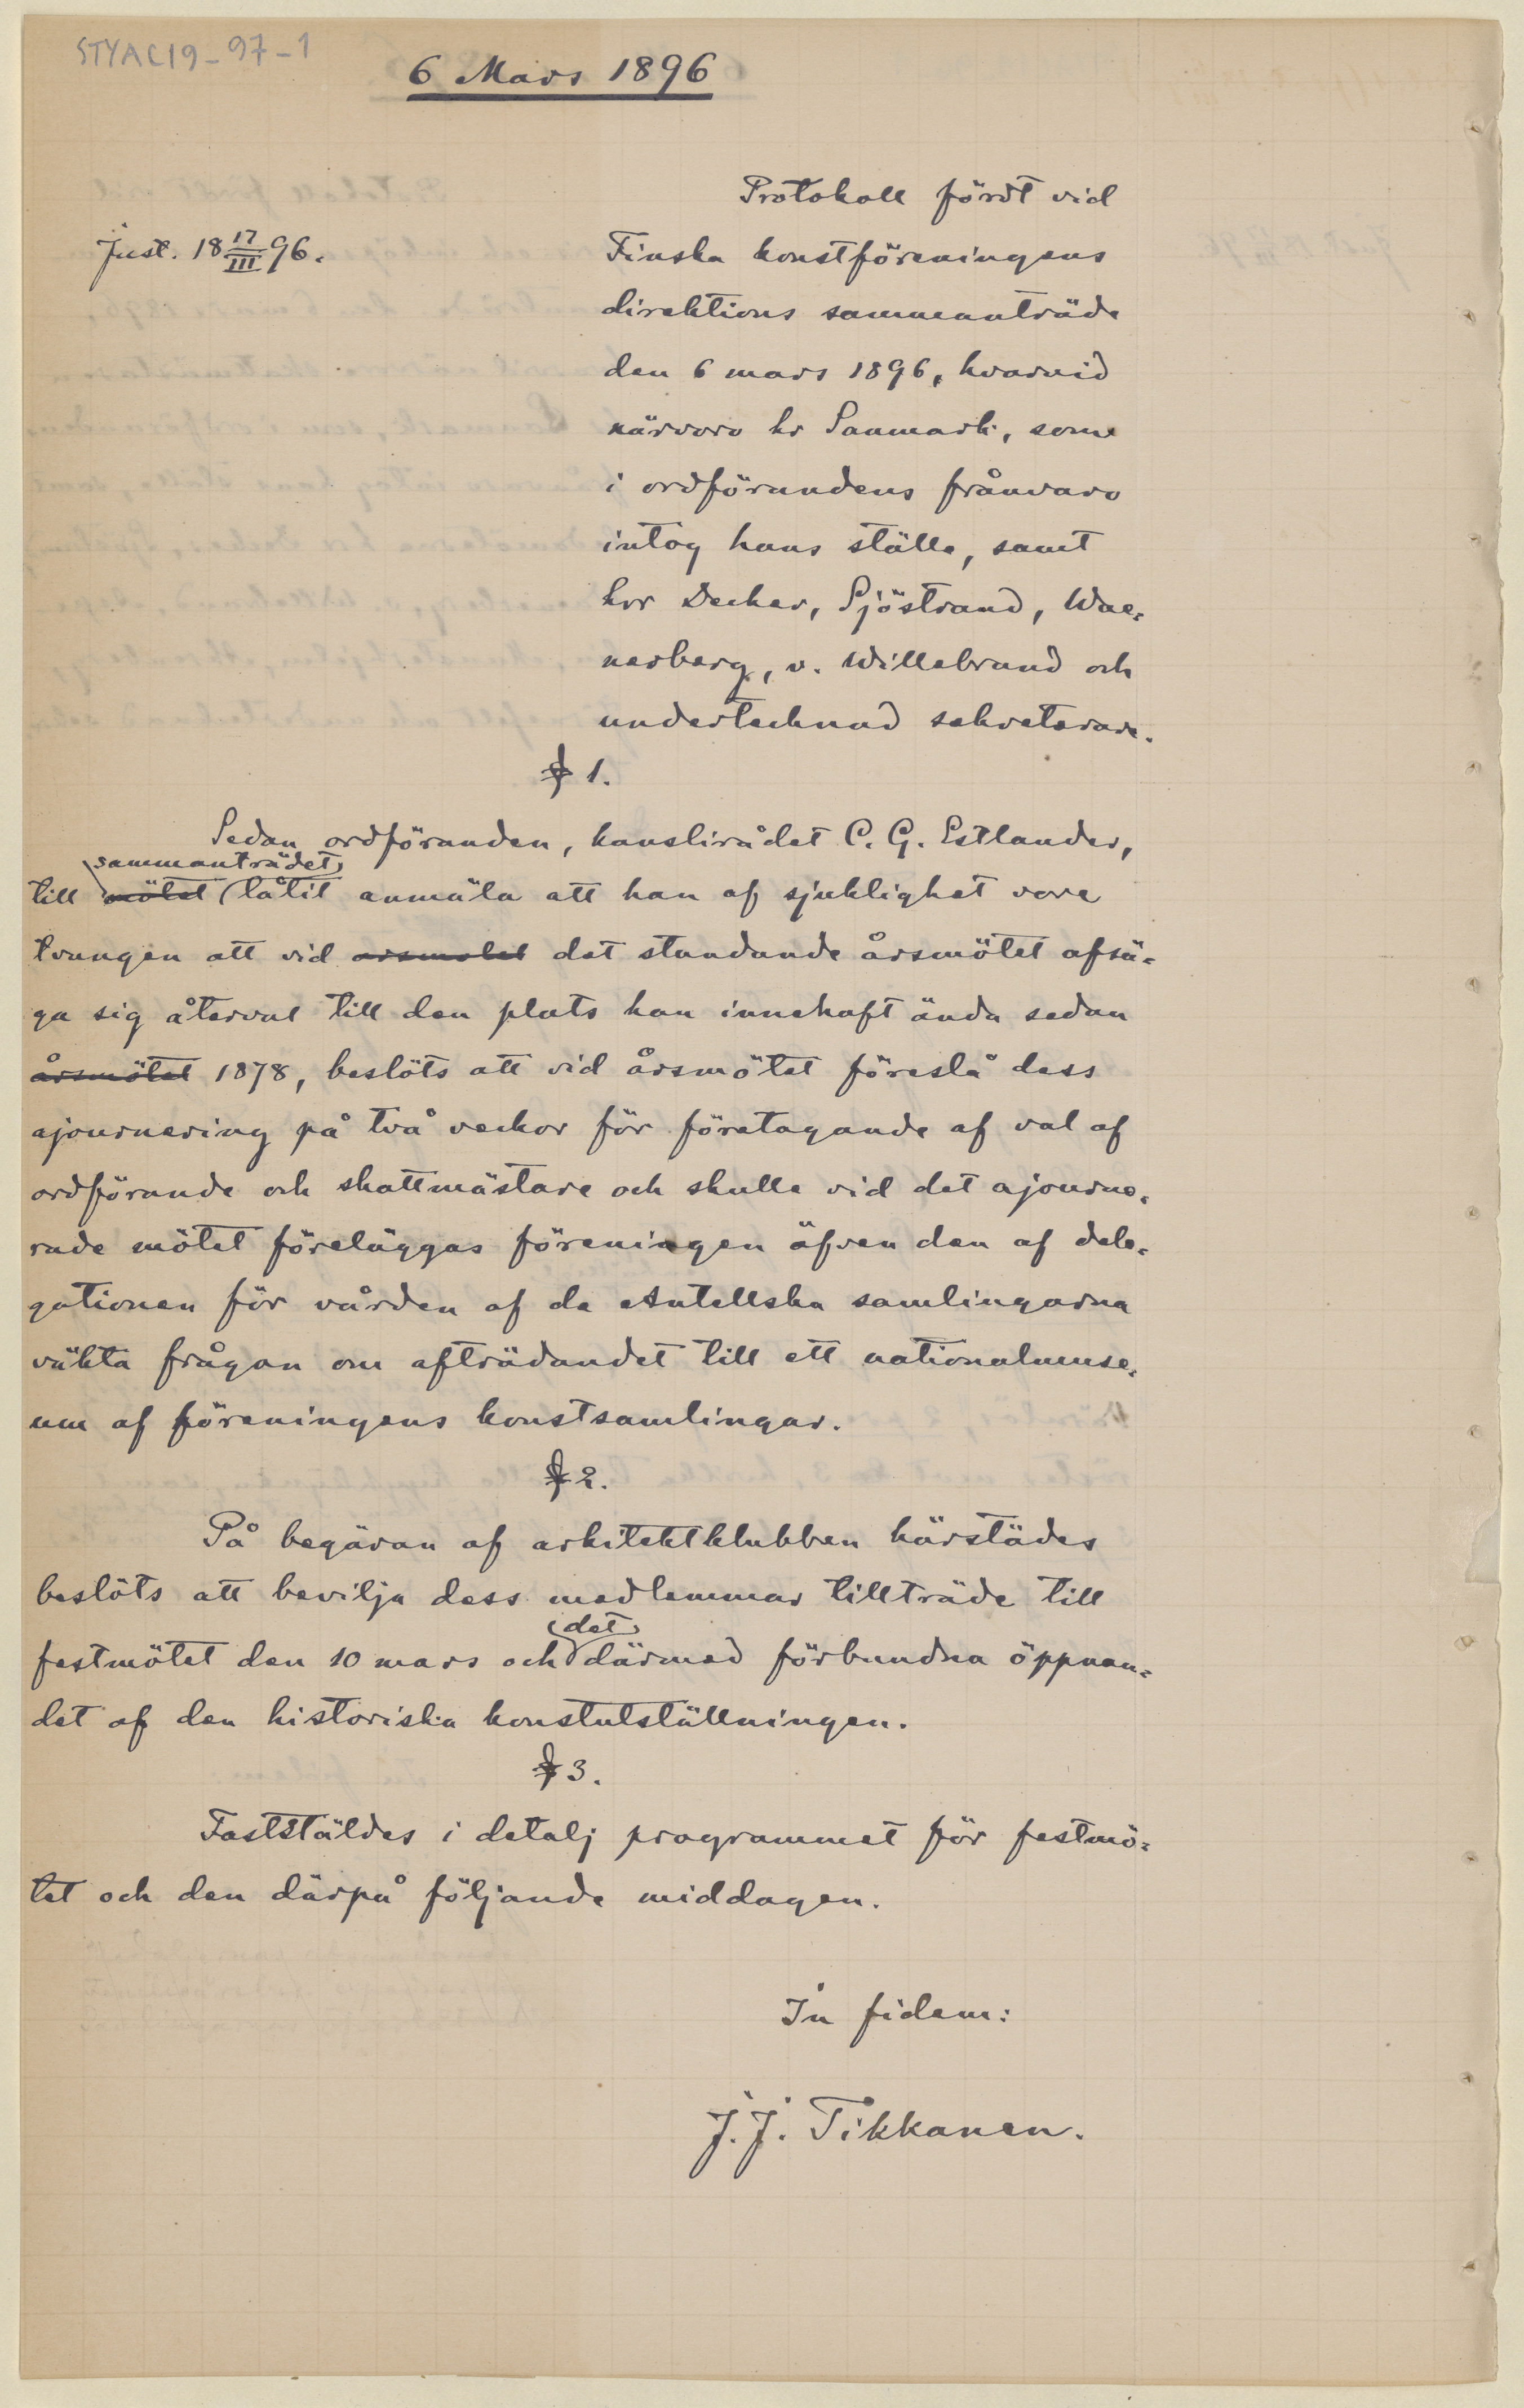 STYAC19-97-1
6 Mars 1896
Protokoll fördt vid
Just. 18 17/III 96.
Finska konstföreningens
direktions sammanträde
den 6 mars 1896, hvarvid
närvoro hr Sanmark, som
i ordförandens frånvaro
intog hans ställe, samt
hrr Decker, Sjöstrand, Wae=
nerberg, v. Willebrand och
undertecknad sekreterare.
§ 1.
Sedan ordföranden, kanslirådet C. G. Estlander,
sammanträdet
till mötet låtit anmäla att han af sjuklighet vore
tvungen att vid årsmötet det stundande årsmötet afsä=
ga sig återval till den plats han innehaft ända sedan
årsmötet 1878, beslöts att vid årsmötet föreslå dess
ajournering på två veckor för företagande af val af
ordförande och skattmästare och skulle vid det ajourne=
rade mötet föreläggas föreningen äfven den af dele=
gationen för vården af de Antellska samlingarna
väkta frågan om afträdandet till ett nationalmuse=
um af föreningens konstsamlingar.
§ 2.
På begäran af arkitektklubben härstädes
beslöts att bevilja dess medlemmar tillträde till
det
festmötet den 10 mars och därmed förbundna öppnan=
det af den historiska konstutställningen.
§ 3.
Fastställdes i detalj programmet för festmö=
tet och den därpå följande middagen.
In fidem:
J. J. Tikkanen.